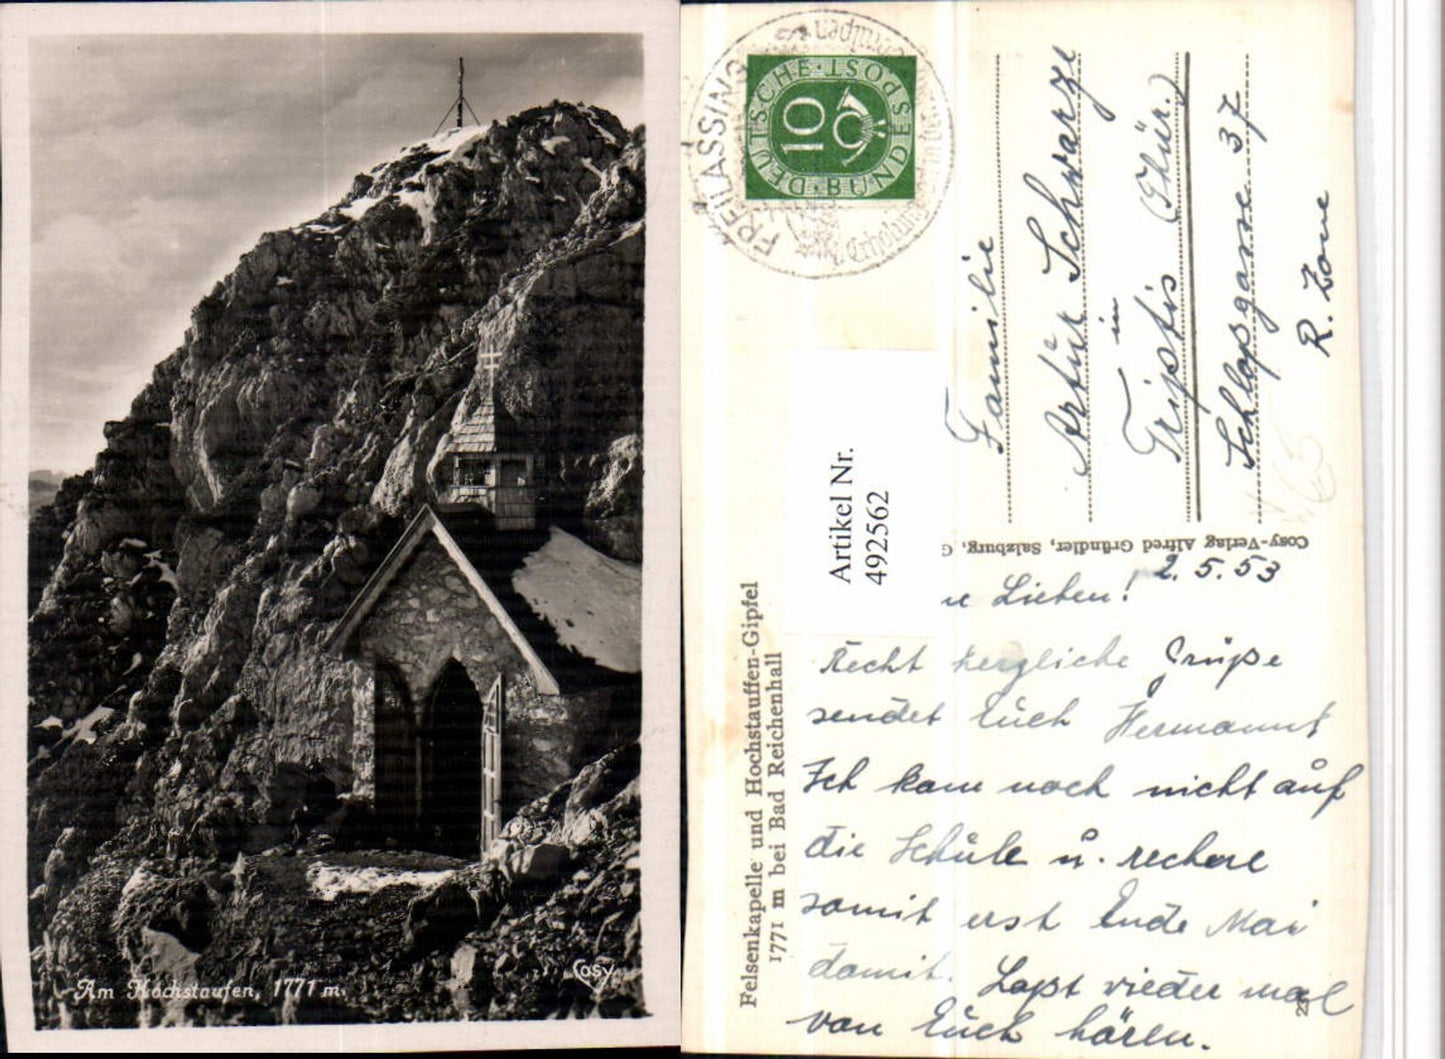 Am Hochstaufen, 1771 m.
Cosy
FREILASSING
DEUTSCHE · BUNDESPOST
10
Familie
Artur Schwarze
in
Triptis (Thür.)
Schlopsgasse 37
R. Zone
Artikel Nr.
492562
Cosy-Verlag Alfred Gründler, Salzburg, G
Felsenkapelle und Hochstauffen-Gipfel
1771 m bei Bad Reichenhall
2.5.53
Lieben!
Recht herzliche Grüße
sendet Euch Hermannt
Ich kam noch nicht auf
die Schule u. rechne
somit erst Ende Mai
damit. Laßt wieder mal
von Euch hören.